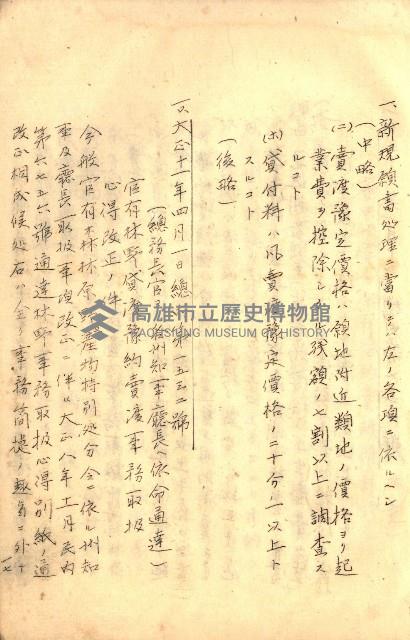 一、新規願書処理ニ當リテハ左ノ各項ニ依ルヘシ
(中略)
(ニ)賣渡豫定價格ハ願地附近類地ノ價格ヨリ起
業費ヲ控除シタル残額ノ七割以上ニ調査ス
ルコト
(ホ)貸付料ハ凡賣渡豫定價格ノ二十分ノ一以上ト
スルコト
(後略)
大正十一年四月一日總 第一五三二號
(總務長官 州知事廳長ヘ依命通達)
官有林野貸渡豫約賣渡事務取扱
心得改正ノ件
今般官有森林原野産物特別処分令ニ依ル州知
事及廳長取扱事項改正ニ伴ヒ大正八年十一月民内
第六七五六號通達林野事務取扱心得別紙ノ通
改正相成候処右ハ全ク事務簡捷ノ趣旨ニ外ナ
高雄市立歷史博物館
KAOHSIUNG MUSEUM OF HISTORY